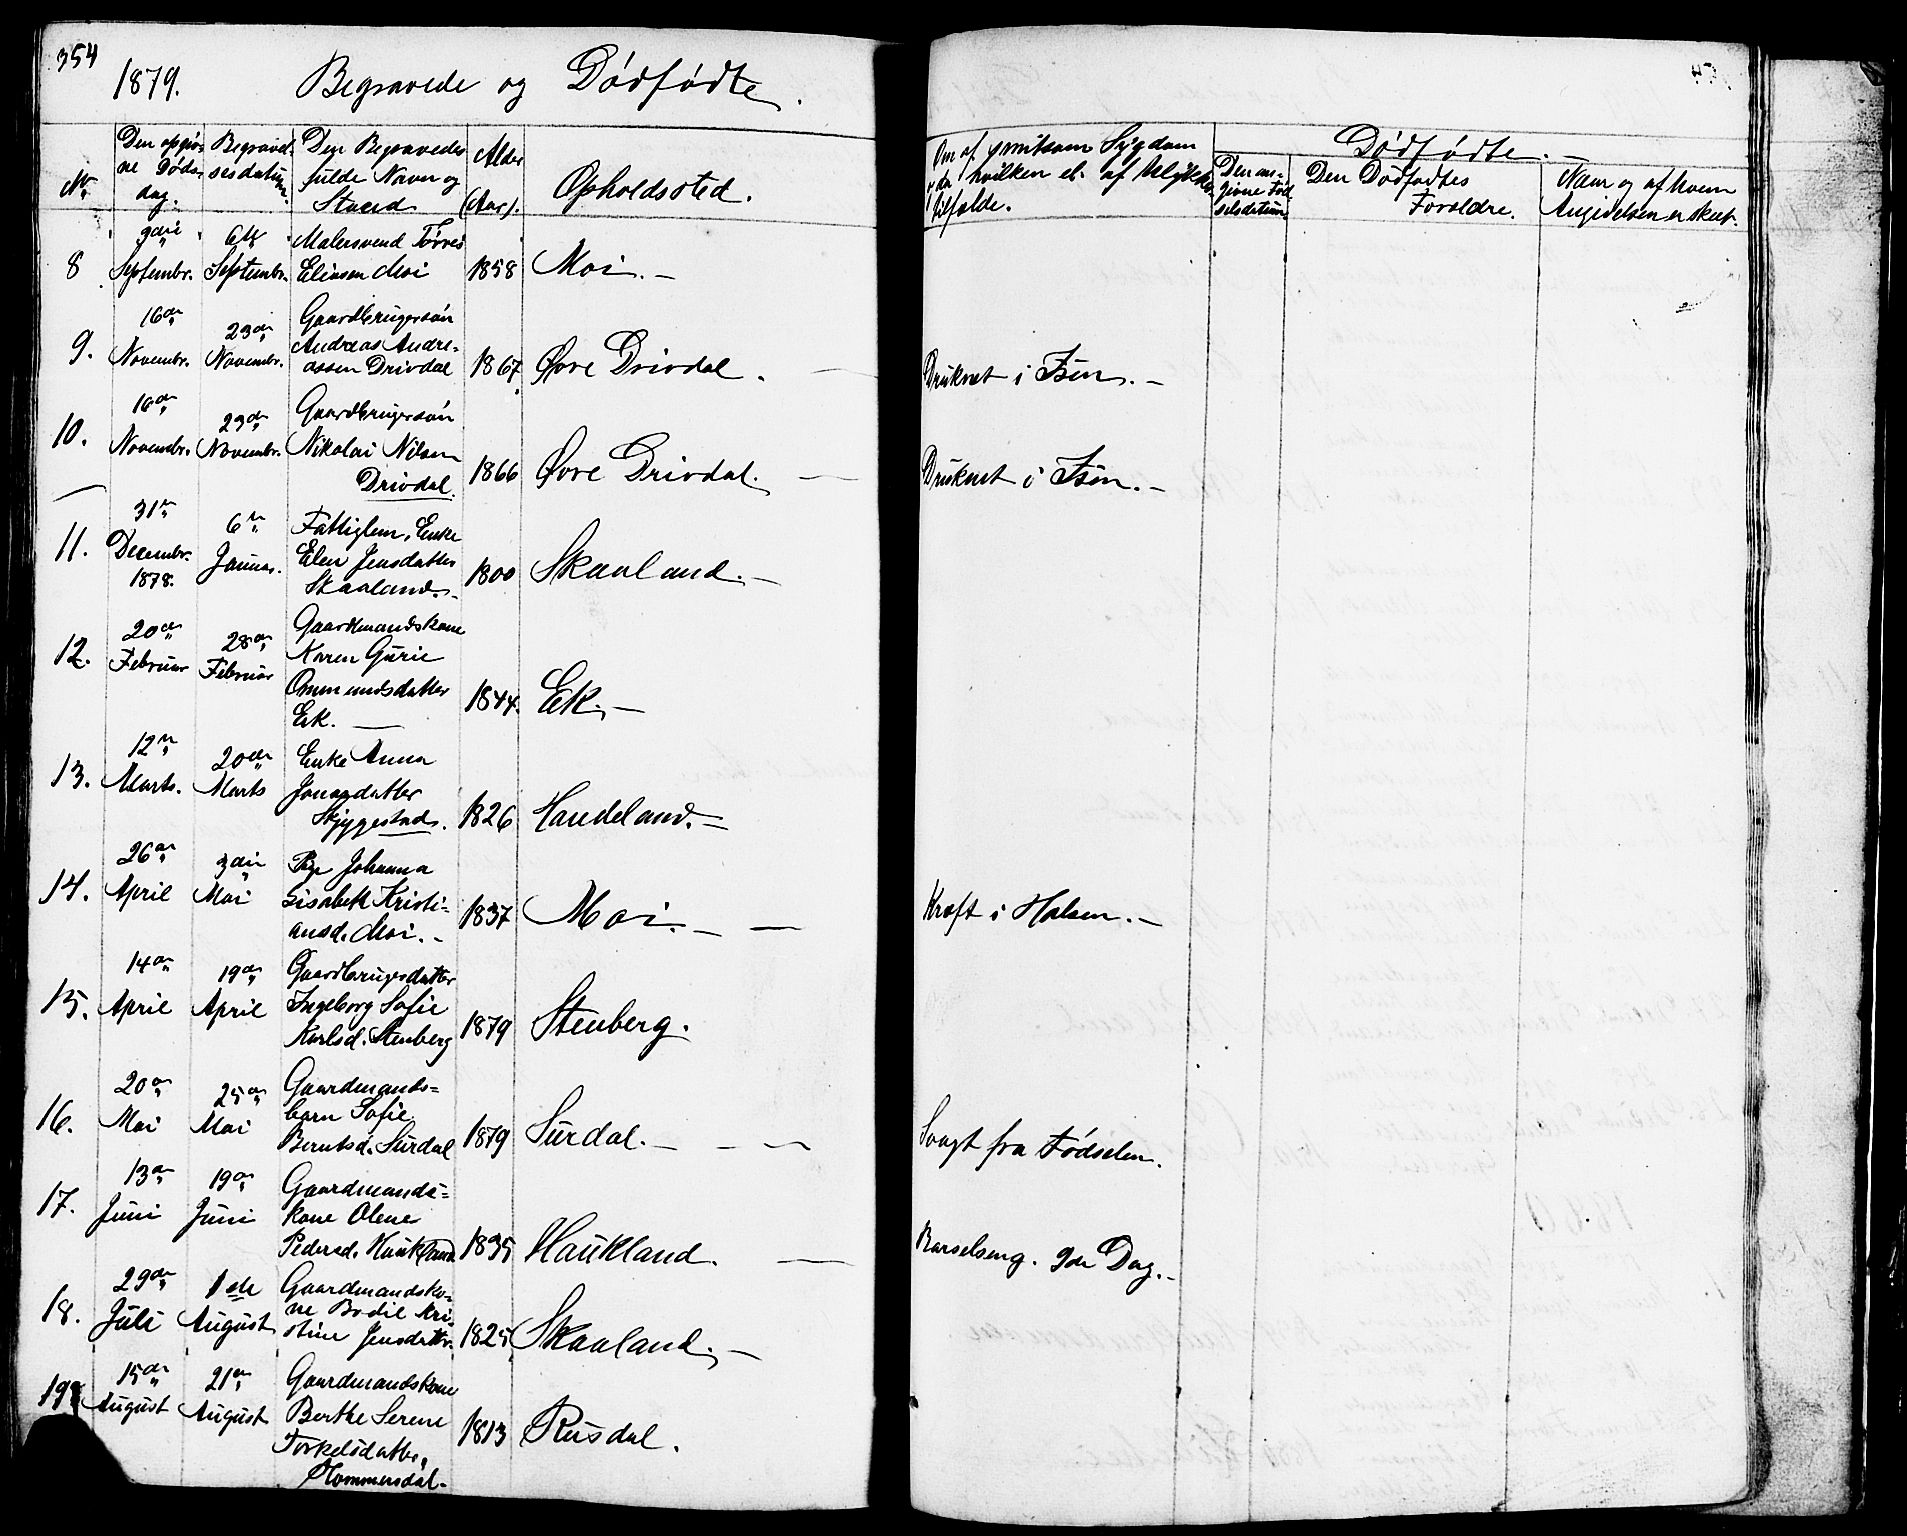 354
1879. Begravede og Dødfødte.
No.
Den opgivne Døds-
dag.
Begravel-
sesdatum.
Den Begravedes
fulde Navn og
Stand
Alder
(Aar).
Opholdssted.
Om af smitsom Sygdom
og da hvilken el. af Ulykkes-
tilfælde.
Dødfødte.
Den an-
givne Fød-
selsdatum
Den Dødfødtes
Forældre.
Naar og af hvem
Angivelsen er skeet.
8
3die
Septembr.
6te
Septembr.
Malersvend Tørres
Eliasen Moi
1858
Moi.
9.
16de
Novembr.
23de
Novembr.
Gaardbrugersøn
Andreas Andre-
assen Drivdal
1867
Øvre Drivdal.
Druknet i Isen.
10.
16de
Novembr.
23de
Novembr.
Gaardbrugersøn
Nikolai Nilsen
Drivdal.
1866
Øvre Drivdal.
Druknet i Isen.
11.
31te
Decembr.
1878.
6te
Januar.
Fattiglem, Enke
Elen Jensdatter
Skaaland.
1800
Skaaland.
12.
20de
Februar
28de
Februar
Gaardmandskone
Karen Gurie
Ommundsdatter
Eik.
1844.
Eik.
13.
12te
Marts.
20de
Marts
Enke Anna
Jonasdatter
Skjyggestad.
1826
Handeland.
14.
26de
April
3die
Mai
Pige Johanna
Lisabeth Kristi-
ansd. Moi.
1837
Moi.
Kræft i Halsen.
15.
14de
April
19de
April
Gaardbrugerdatter
Ingeborg Sofie
Karlsd. Stenberg
1879
Stenberg.
16.
20de
Mai
25de
Mai
Gaardmands-
barn Sofie
Berntsd. Surdal
1879
Surdal.
Svagt fra Fødselen.
17.
13de
Juni
19de
Juni
Gaardmands-
kone Olene
Pedersd. Haukland
1835
Haukland.
Barselseng. 9de Dag.
18.
29de
Juli
1ste
August
Gaardmandsko-
ne Bodil Kri-
stine Jensdatter.
1825
Skaaland.
19
15de
August
21de
August
Gaardmandskone
Berthe Serene
Torkelsdatter,
Hommersdal.
1813
Rusdal.